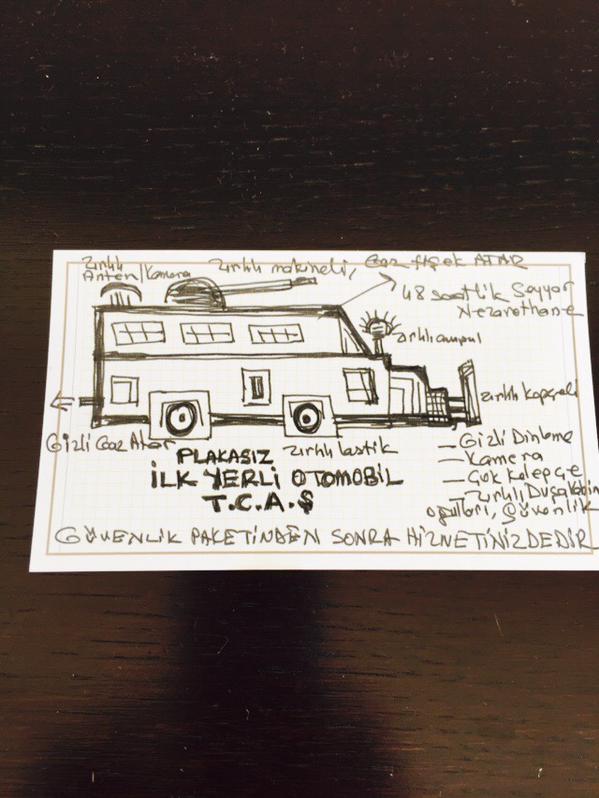 zırhlı
Anten/Kamera
zırhlı makineli, Gaz fişek ATAR
48 saatlik Seyyar
Nezarethane
zırhlı ampul
zırhlı kepçeli
Gizli Gaz Atar
zırhlı lastik
PLAKASIZ
İLK YERLİ OTOMOBİL
T.C.A.Ş
— Gizli Dinleme
— Kamera
— Çok Kelepçe
Zırhlı
oğulları, Güvenlik
GÜVENLİK PAKETİNDEN SONRA HİZNETİNİZDEDİR